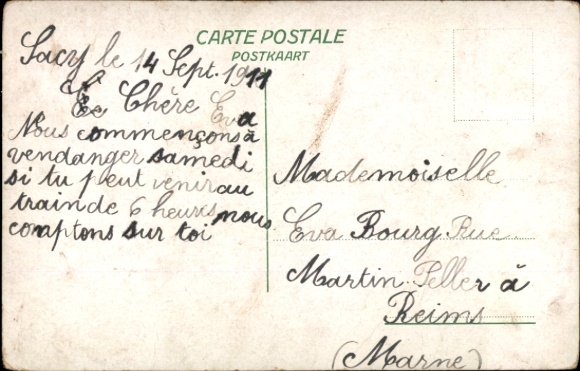 CARTE POSTALE
POSTKAART
Sacy le 14 Sept. 1911
Chère Eva
Nous commençons à
vendanger samedi
si tu peut venir au
train de 6 heures nous
comptons sur toi
Mademoiselle
Eva Bourg Rue
Martin Peller à
Reims
(Marne)